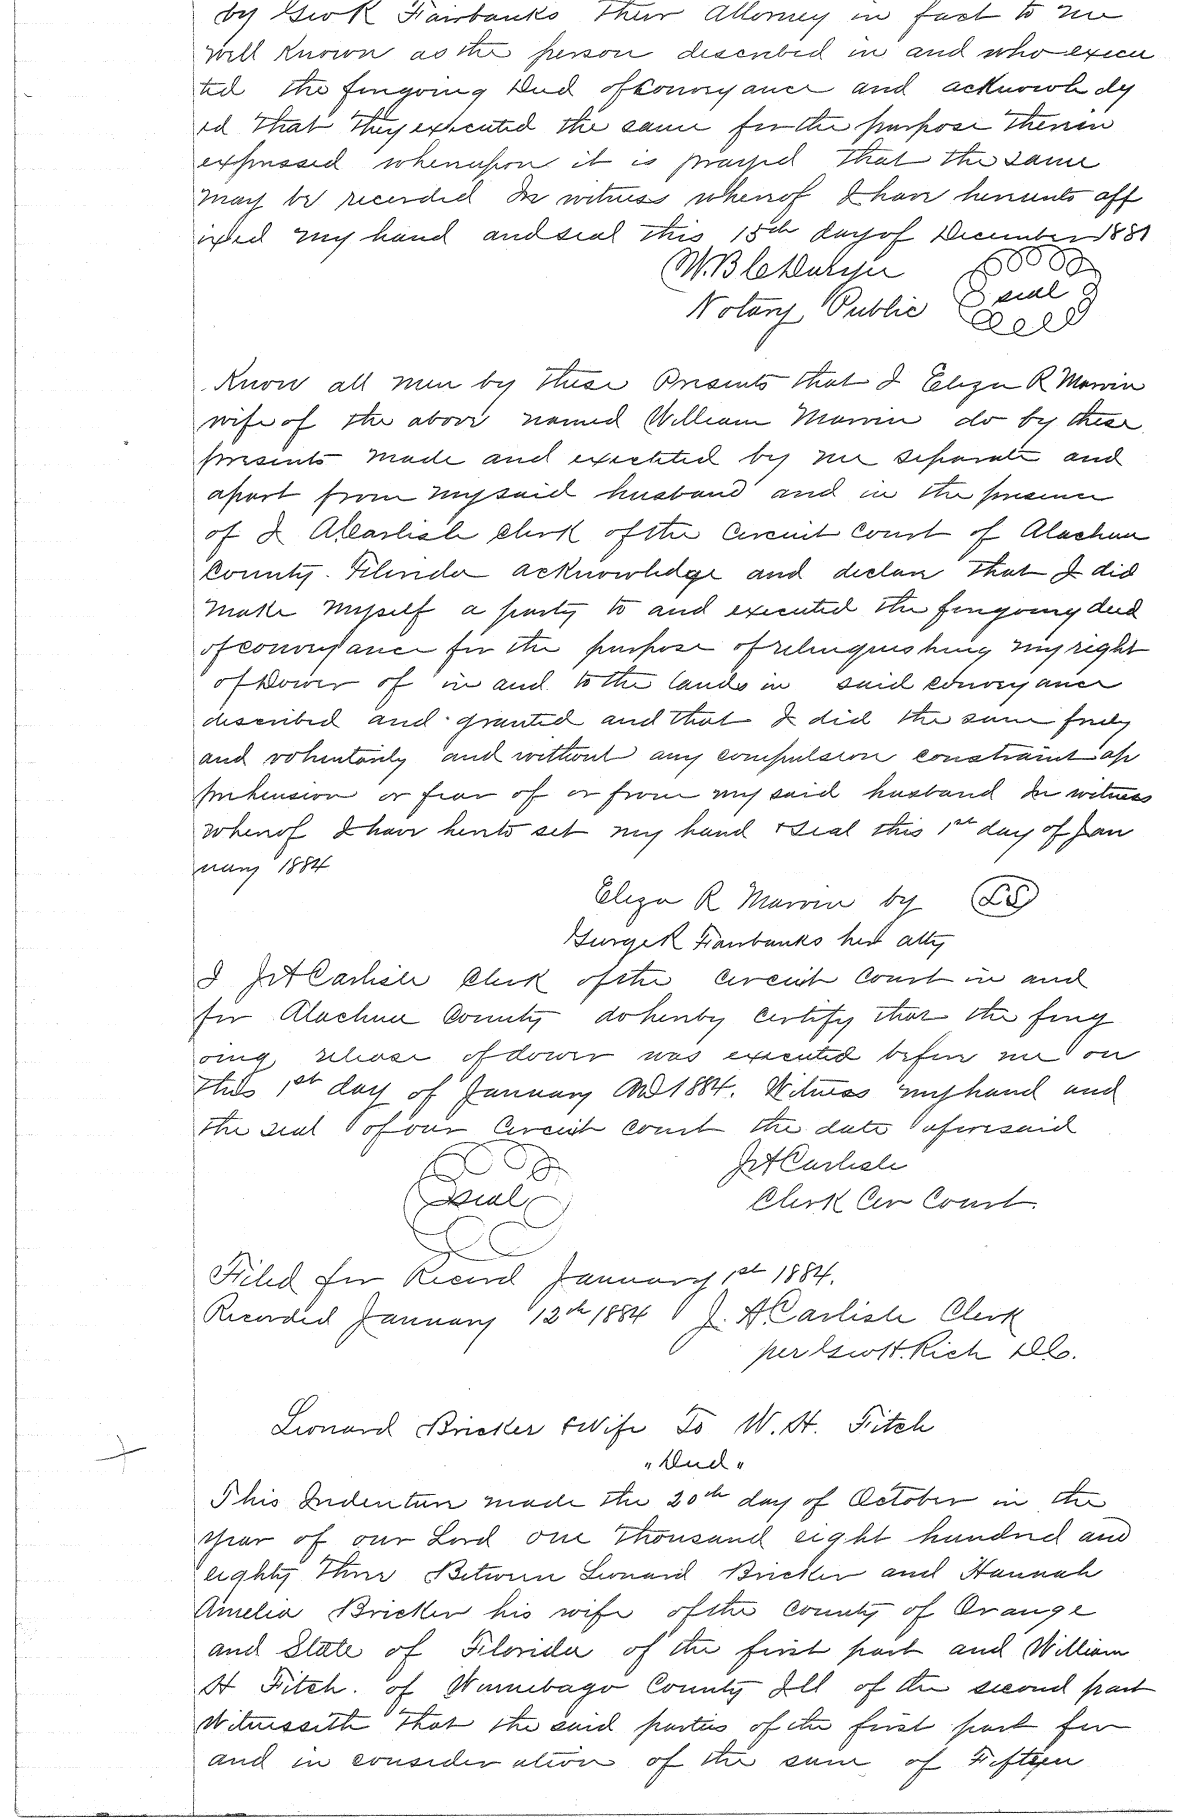 by Geo R Fairbanks their Attorney in fact to me
well known as the person described in and who execu
ted the foregoing Deed of Conveyance and acknowledg
ed that they executed the same for the purpose therein
expressed whereupon it is prayed that the same
may be recorded In witness whereof I have hereunto aff
ixed my hand and seal this 15th day of December 1881
W. B.
Notary Public seal
Know all men by these Presents that I Eliza R Marvin
wife of the above named William Marvin do by these
presents made and executed by me separate and
apart from my said husband and in the presence
of J A Carlisle Clerk of the Circuit Court of Alachua
County. Florida acknowledge and declare that I did
make myself a party to and executed the foregoing deed
of conveyance for the purpose of relinquishing my right
of Dower of in and to the lands in said conveyance
described and granted and that I did the same freely
and voluntarily and without any compulsion constraint ap
prehension or fear of or from my said husband In witness
whereof I have hereto set my hand & seal this 1st day of Jan
uary 1884
Eliza R Marvin by LS
George R Fairbanks her atty
I J A Carlisle Clerk of the Circuit Court in and
for Alachua County do hereby certify that the foreg
oing release of dower was executed before me on
this 1st day of January AD 1884. Witness my hand and
the seal of our Circuit Court the date aforesaid
seal J A Carlisle
Clerk Cir Court.
Filed for Record January 1st 1884.
Recorded January 12th 1884 J. A. Carlisle Clerk
per Geo H. Rich D.C.
Leonard Bricker & Wife To W. H. Fitch
"Deed"
This Indenture made the 20th day of October in the
year of our Lord one thousand eight hundred and
eighty three Between Leonard Bricker and Hannah
Amelia Bricker his wife of the County of Orange
and State of Florida of the first part and William
H Fitch. of Winnebago County Ill of the second part
Witnesseth that the said parties of the first part for
and in consideration of the sum of Fifteen